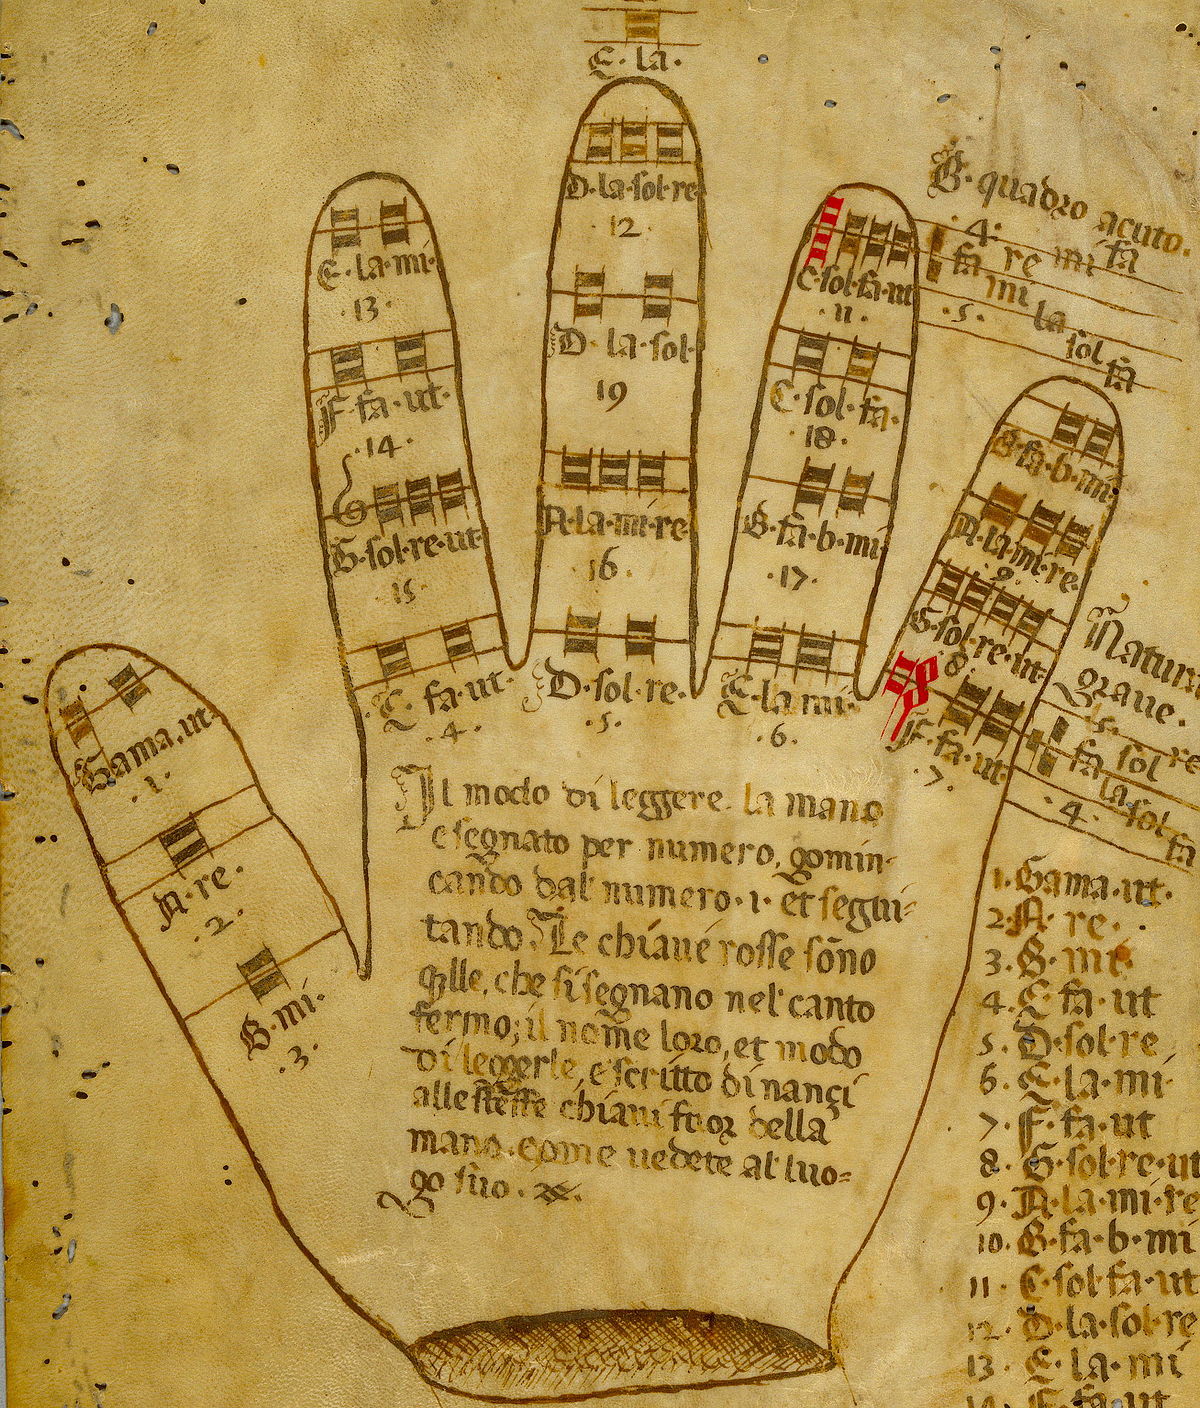 E·la·
D·la·sol·re
·12·
E·la·mi·
·13·
F·fa·ut·
·14·
G·sol·re·ut·
15·
C·fa·ut·
·4·
D·la·sol·
19
A·la·mi·re·
16·
D·sol·re·
·5·
C·sol·fa·ut
·11·
C·sol·fa·
·18·
B·fa·b·mi
·17·
E·la·mi·
·6·
B·fa·b·mi·
A·la·mi·re·
·9·
G·sol·re·ut·
·8·
F·fa·ut·
·7·
B·quadro acuto·
·4·
fa re mi fa
·5· mi la sol fa
Natura
graue·
·5· re
fa sol
la sol
·4· fa
Gama·ut·
·1·
A·re·
·2·
B·mi·
·3·
Il modo di leggere la mano
e segnato per numero, gomin-
cando dal numero·1· et segui=
tando· Le chiaue rosse sōno
qlle, che si segnano nel canto
fermo; il nome loro, et modo
di leggerle, e scritto dinançi
alle stesse chiaui fuor della
mano, come uedete al luo=
go suo·
1·Gama·ut·
2·A·re·
3·B·mi·
4·C·fa·ut
5·D·sol·re
6·E·la·mi
7·F·fa·ut
8·G·sol·re·ut
9·A·la·mi·re
10·B·fa·b·mi
11·C·sol·fa·ut
12·D·la·sol·re
13·E·la·mi
14·F·fa·ut